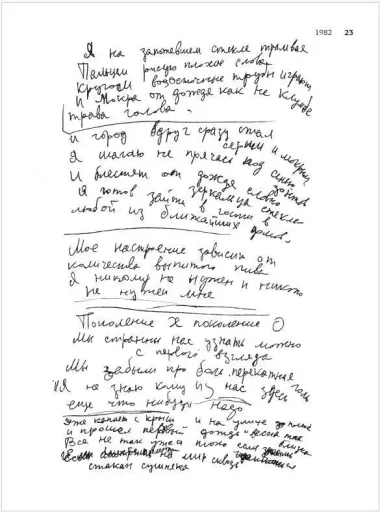 1982 23
Я на запотевшем стекле трамвая
Пальцем рисую плохие слова
Кругом водосточные трубы играют
И мокра от дождя как не клумбе
трава голова.
и город вдруг сразу стал
серым и мокрым
Я шагаю не прячась под
И блестят от дождя словно
зеркальца стекла
Я готов зайти в гости в
любой из ближайших домов.
Мое настроение зависит от
количества выпитого пива
Я никому не нужен и никто
не нужен мне
Поколение X поколение 0
Мы странны нас узнать можно
с первого взгляда
Мы забыли про бога, перекатная голь
И я не знаю кому из нас здесь
еще что нибудь надо
Уже капает с крыш и на улице
и прошел первый дождь и весна так
близко
Все не так уж и плохо если
на мир сквозь
стакан сушняка